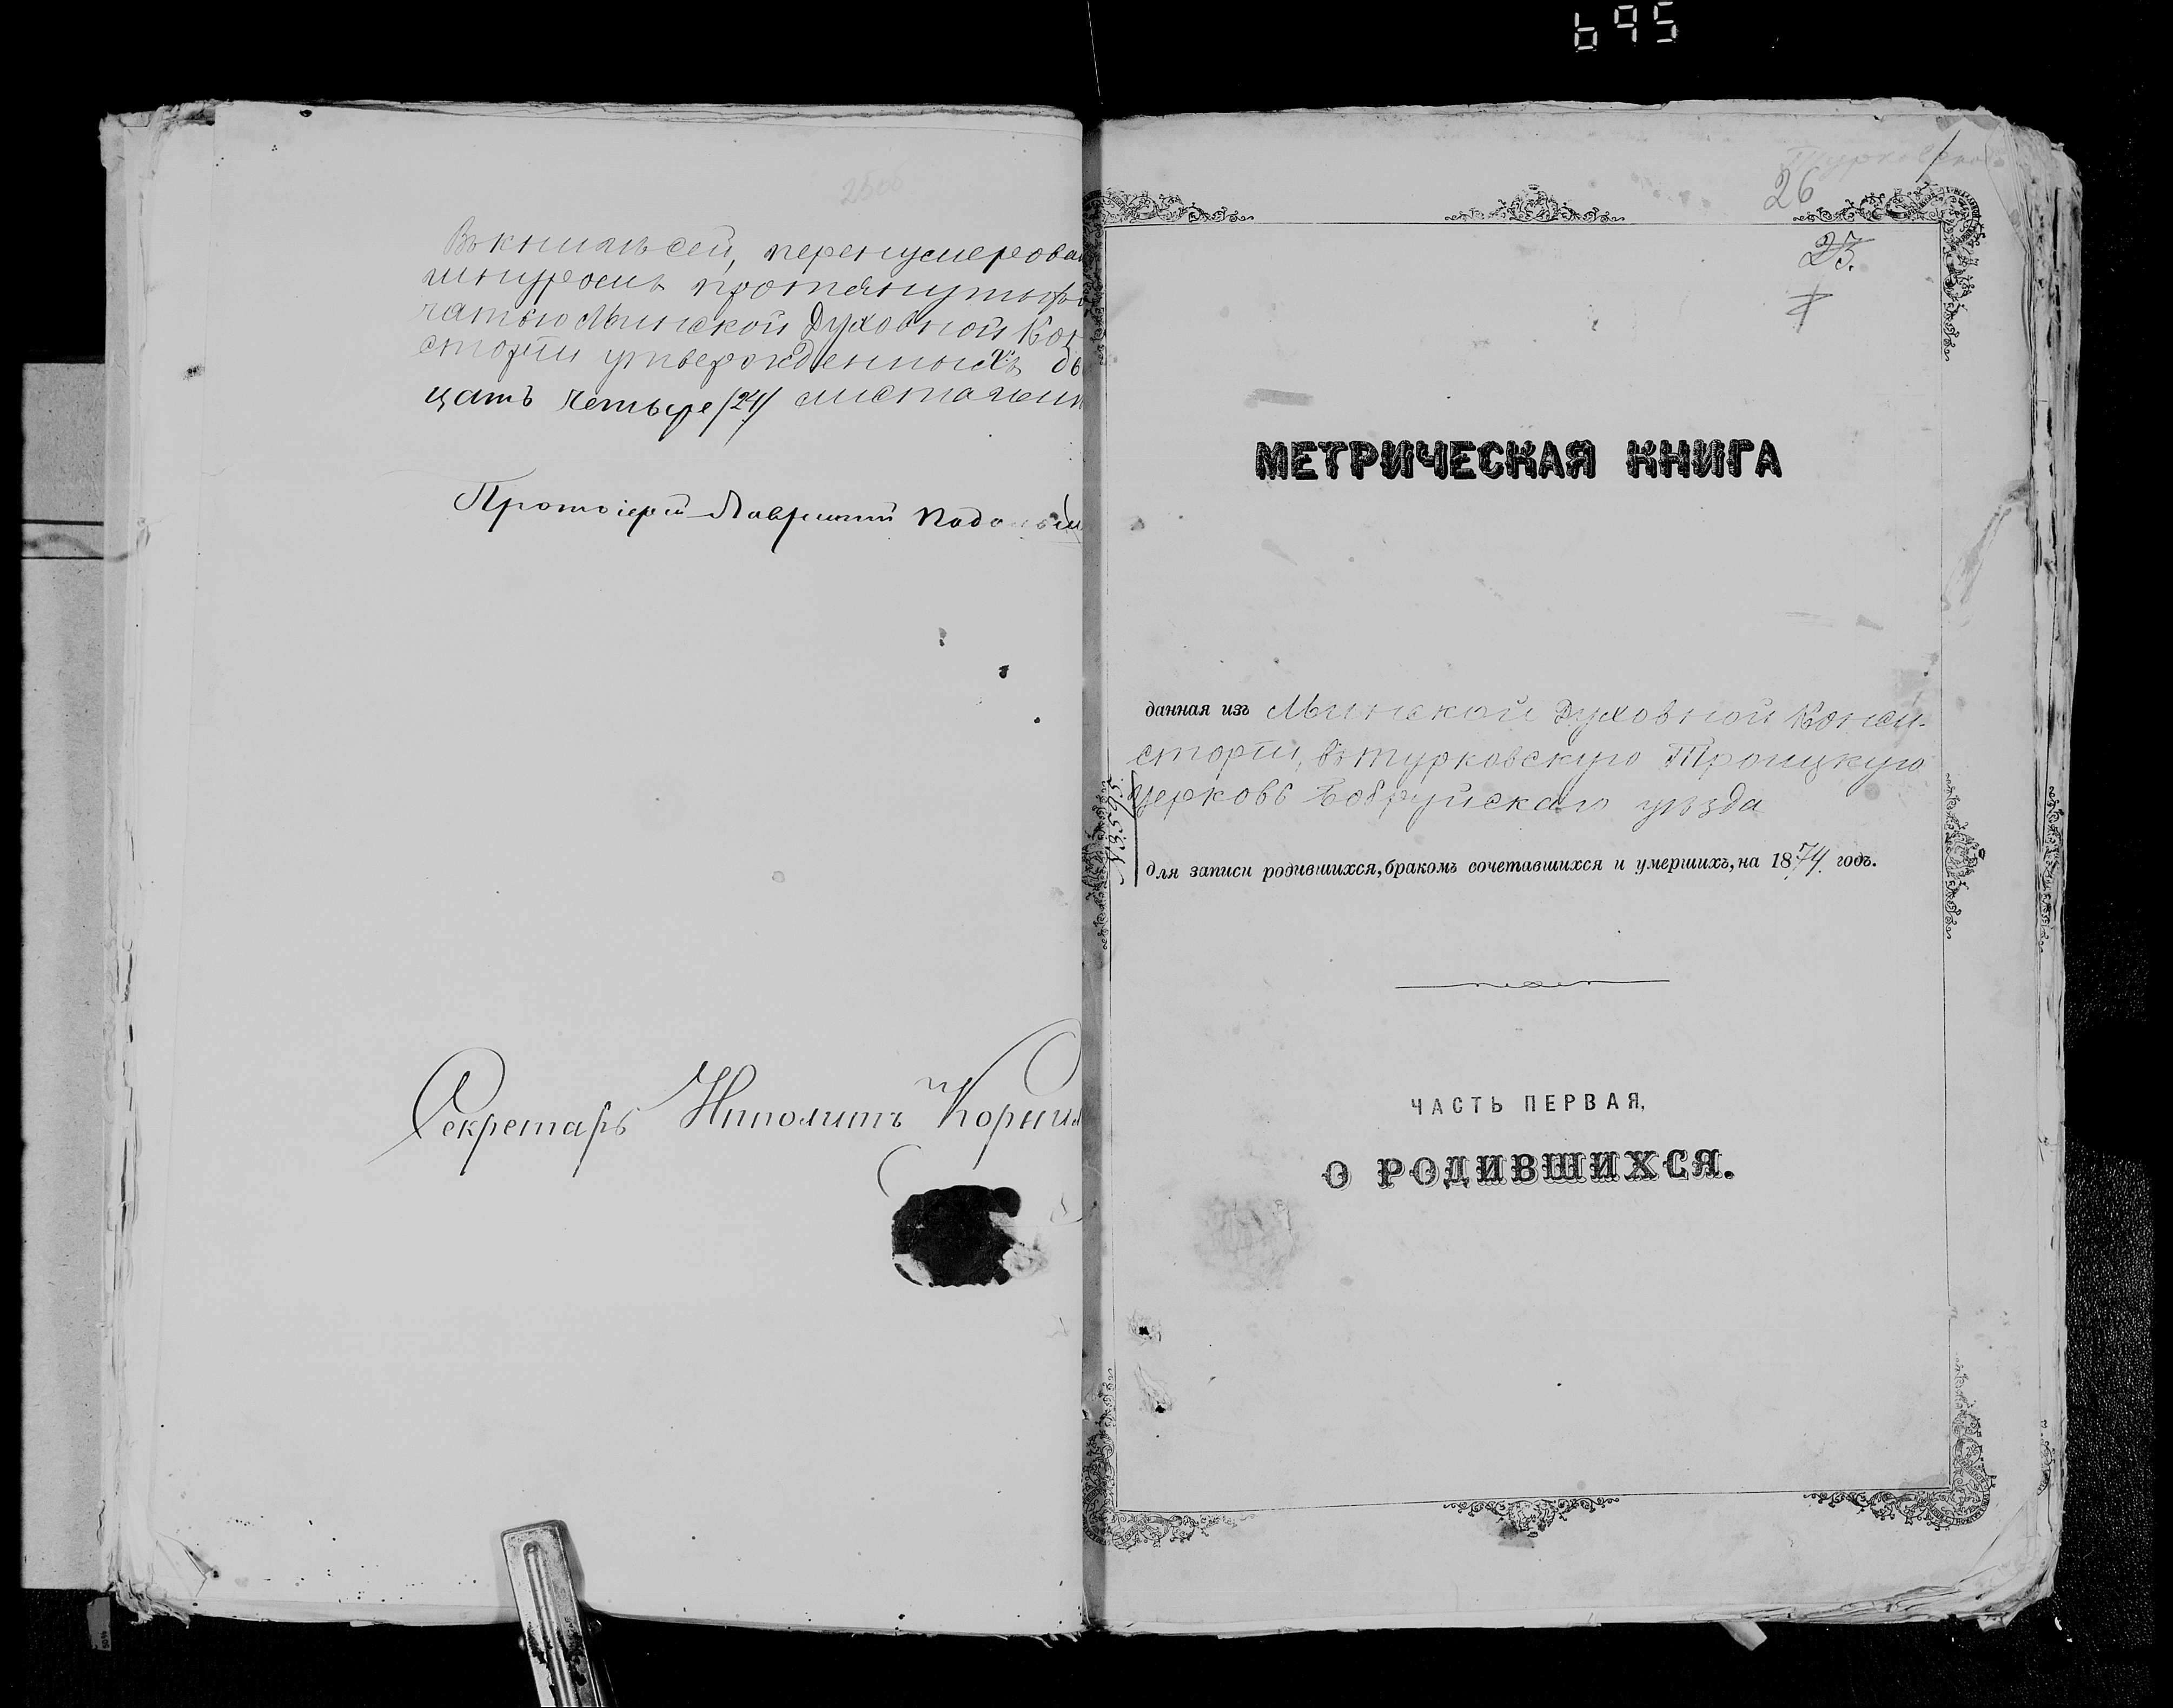 695
25об
Въ книгѣ сей, перенумерован
шнуромъ протянутыхъ
чатью Минской Духовной Кон
сторіи утвержденныхъ дв
цать четыре /24/ листа
Протоіерей Лаврентій
Секретарь Ипполитъ Корнил
1
26
23.
МЕТРИЧЕСКАЯ КНИГА
данная изъ Минской Духовной Конси-
сторіи, въ Турковскую Троицкую
церковь Бобруйскаго уѣзда
для записи родившихся, бракомъ сочетавшихся и умершихъ, на 1874 годъ.
ЧАСТЬ ПЕРВАЯ,
О РОДИВШИХСЯ.